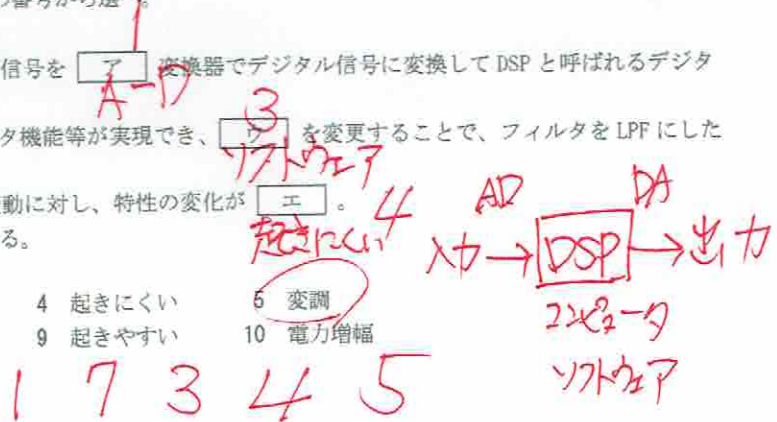 の番号から選
1
信号を ア 変換器でデジタル信号に変換して DSP と呼ばれるデジタ
A-D
3
タ機能等が実現でき、 ウ を変更することで、フィルタを LPF にした
ソフトウェア
動に対し、特性の変化が エ 。
4
起きにくい
る。
AD DA
入力→DSP→出力
コンピュータ
ソフトウェア
4 起きにくい 5 変調
9 起きやすい 10 電力増幅
1 7 3 4 5